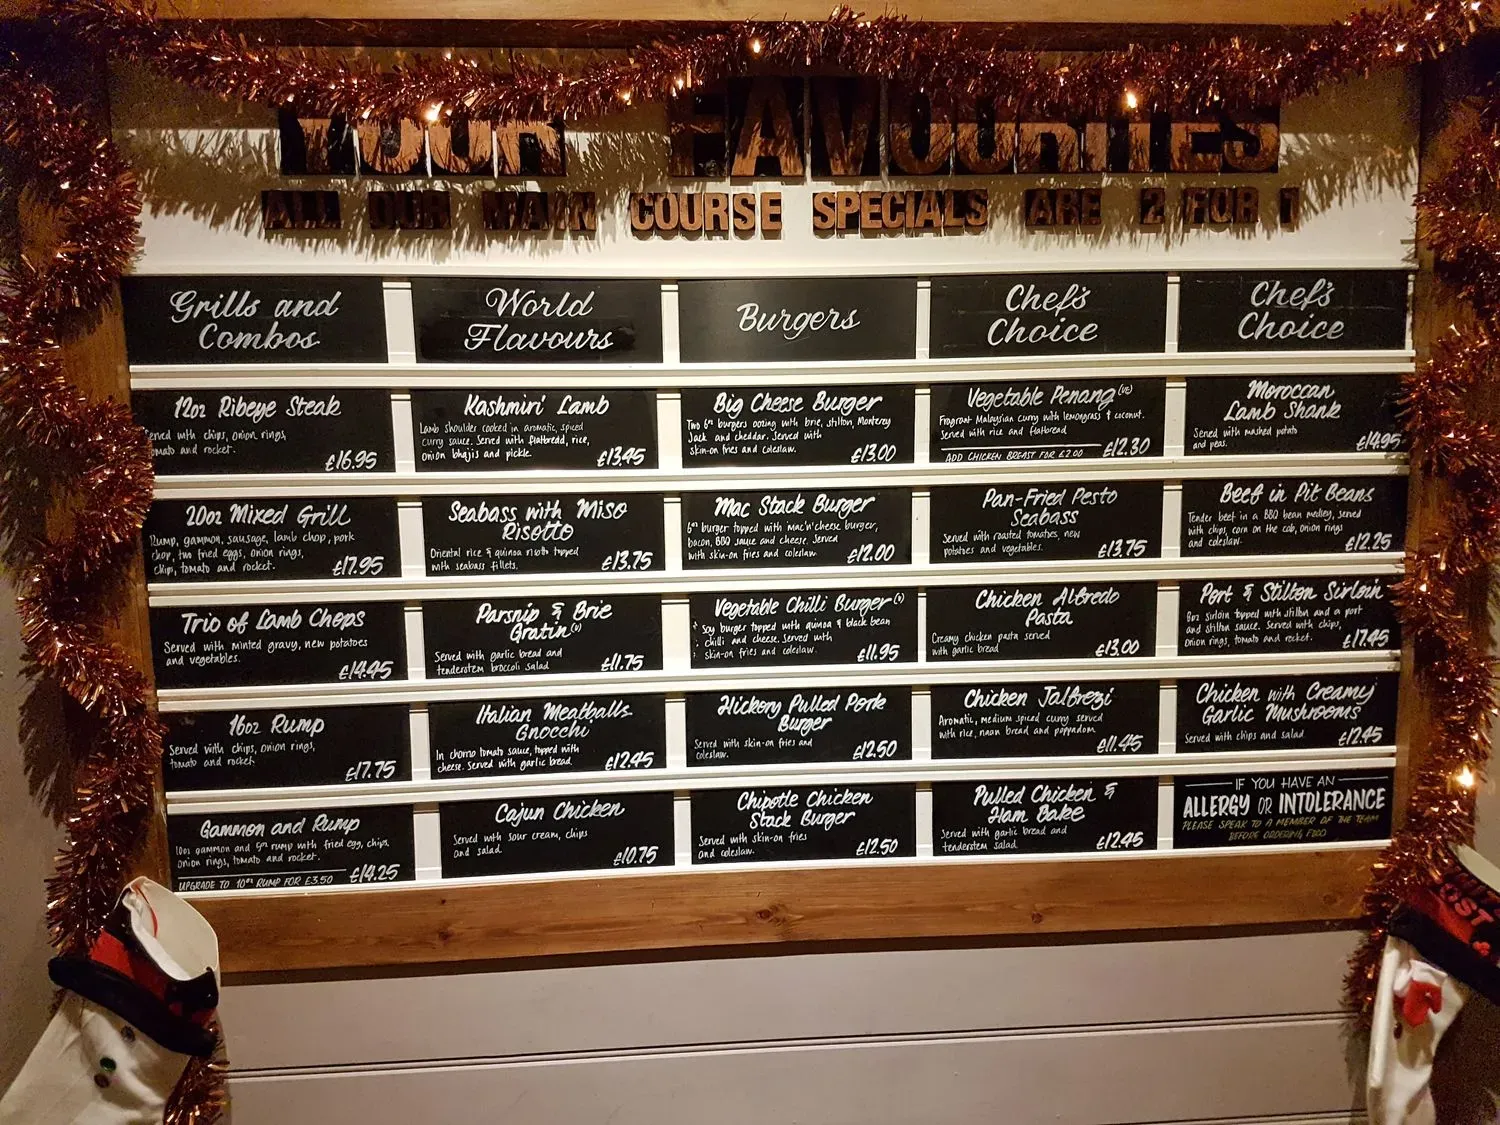 YOUR FAVOURITES
ALL OUR MAIN COURSE SPECIALS ARE 2 FOR 1
Grills and
Combos
12oz Ribeye Steak
Served with chips, onion rings,
tomato and rocket.
£16.95
20oz Mixed Grill
Rump, gammon, sausage, lamb chop, pork
chop, two fried eggs, onion rings,
chips, tomato and rocket.
£17.95
Trio of Lamb Chops
Served with minted gravy, new potatoes
and vegetables.
£14.45
16oz Rump
Served with chips, onion rings,
tomato and rocket
£17.75
Gammon and Rump
10oz gammon and 5oz rump with fried egg, chips,
onion rings, tomato and rocket.
UPGRADE TO 10oz RUMP FOR £3.50
£14.25
World
Flavours
Kashmiri Lamb
Lamb shoulder cooked in aromatic, spiced
curry sauce. Served with flatbread, rice,
onion bhajis and pickle.
£13.45
Seabass with Miso
Risotto
Oriental rice & quinoa risotto topped
with seabass fillets.
£13.75
Parsnip & Brie
Gratin (v)
Served with garlic bread and
tenderstem broccoli salad
£11.75
Italian Meatballs
Gnocchi
In chorizo tomato sauce, topped with
cheese. Served with garlic bread.
£12.45
Cajun Chicken
Served with sour cream, chips
and salad.
£10.75
Burgers
Big Cheese Burger
Two 6oz burgers oozing with brie, stilton, Monterey
Jack and cheddar. Served with
skin-on fries and coleslaw.
£13.00
Mac Stack Burger
6oz burger topped with 'mac'n'cheese burger,
bacon, BBQ sauce and cheese. Served
with skin-on fries and coleslaw
£12.00
Vegetable Chilli Burger (v)
Soy burger topped with quinoa & black bean
chilli and cheese. Served with
skin-on fries and coleslaw.
£11.95
Hickory Pulled Pork
Burger
Served with skin-on fries and
coleslaw.
£12.50
Chipotle Chicken
Stack Burger
Served with skin-on fries
and coleslaw.
£12.50
Chef's
Choice
Vegetable Penang (ve)
Fragrant Malaysian curry with lemongrass & coconut.
Served with rice and flatbread
£12.30
ADD CHICKEN BREAST FOR £2.00
Pan-Fried Pesto
Seabass
Served with roasted tomatoes, new
potatoes and vegetables.
£13.75
Chicken Alfredo
Pasta
Creamy chicken pasta served
with garlic bread
£13.00
Chicken Jalfrezi
Aromatic, medium spiced curry served
with rice, naan bread and poppadom
£11.45
Pulled Chicken &
Ham Bake
Served with garlic bread and
tenderstem salad
£12.45
Chef's
Choice
Moroccan
Lamb Shank
Served with mashed potato
and peas.
£14.95
Beef in Pit Beans
Tender beef in a BBQ bean medley, served
with chips, corn on the cob, onion rings
and coleslaw.
£12.25
Port & Stilton Sirloin
8oz sirloin topped with stilton and a port
and stilton sauce. Served with chips,
onion rings, tomato and rocket.
£17.45
Chicken with Creamy
Garlic Mushrooms
Served with chips and salad
£12.45
IF YOU HAVE AN
ALLERGY OR INTOLERANCE
PLEASE SPEAK TO A MEMBER OF THE TEAM
BEFORE ORDERING FOOD